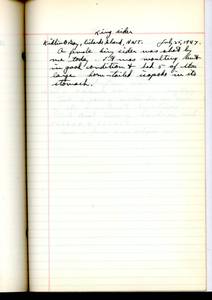 King eider
Holman, Island, N.W.T. July 25, 1947.
A female king eider was shot by
me today. It was moulting but
in good condition & had 5 of the
large horn-tailed isopods in its
stomach.